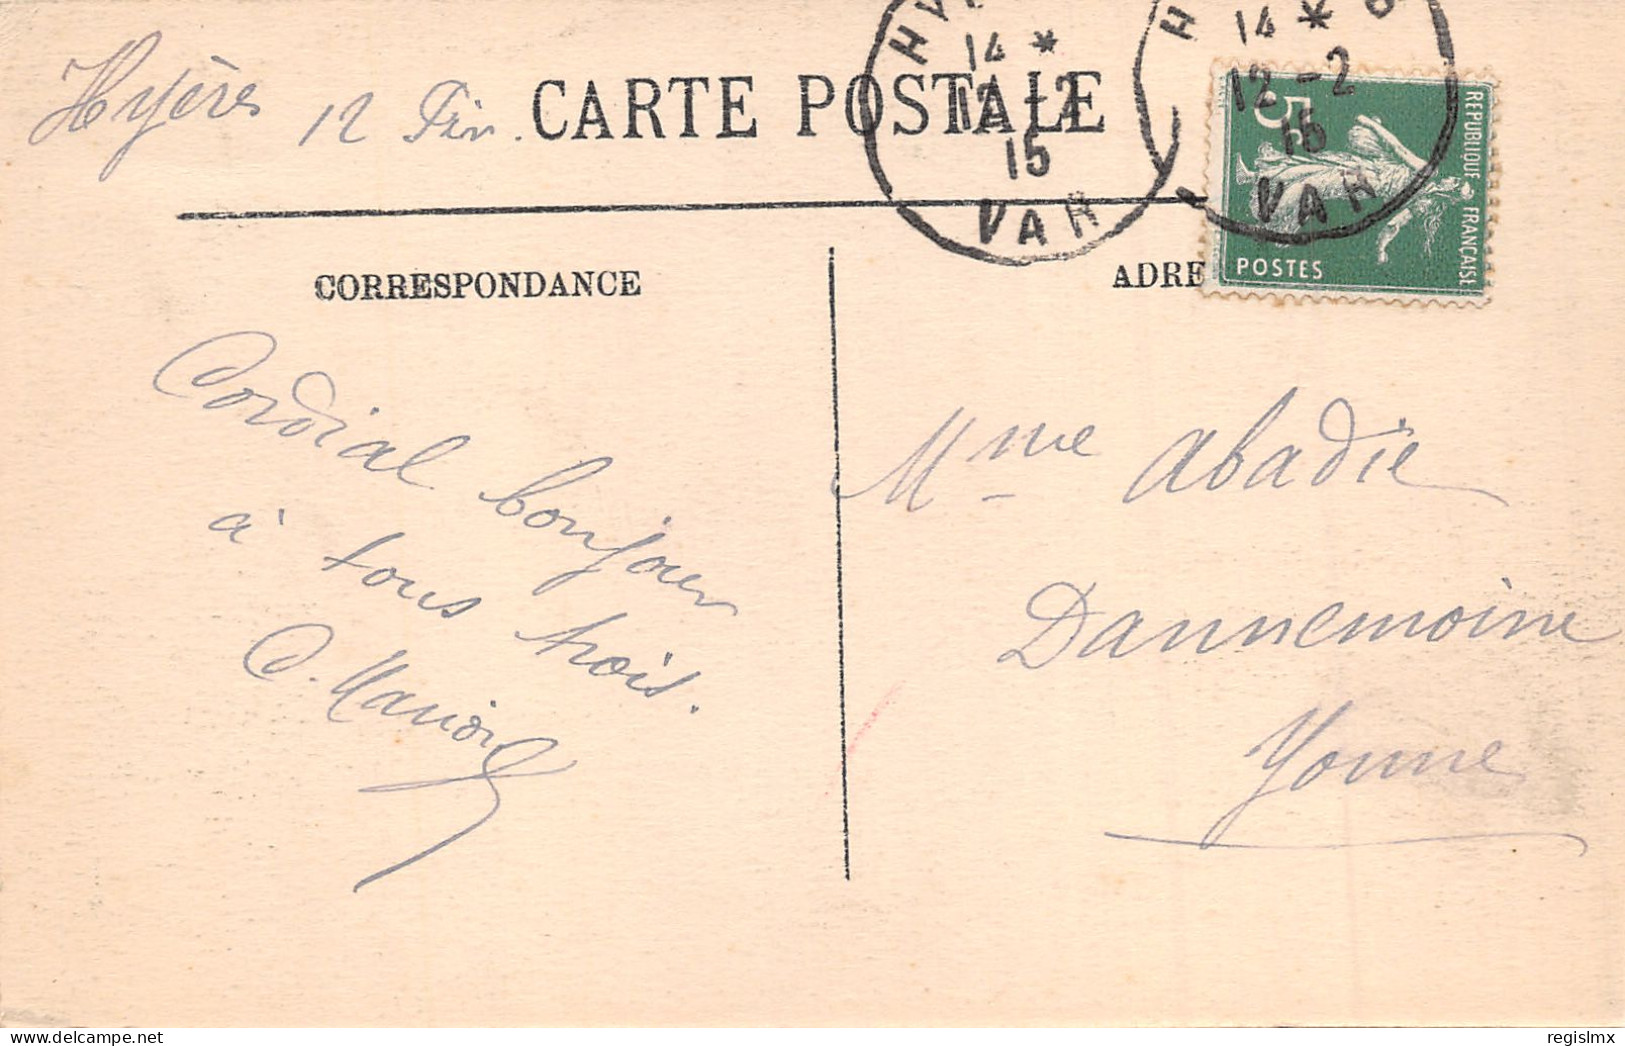 Hyères 12 Fév.
CARTE POSTALE
HY
14 *
12 - 2
15
VAR
H
14 *
12 - 2
15
VAR
5
REPUBLIQUE FRANÇAISE
POSTES
CORRESPONDANCE
ADRE
Cordial bonjour
à tous trois.
Mme Abadie
Dannemoine
Yonne
delcampe.net
regislmx